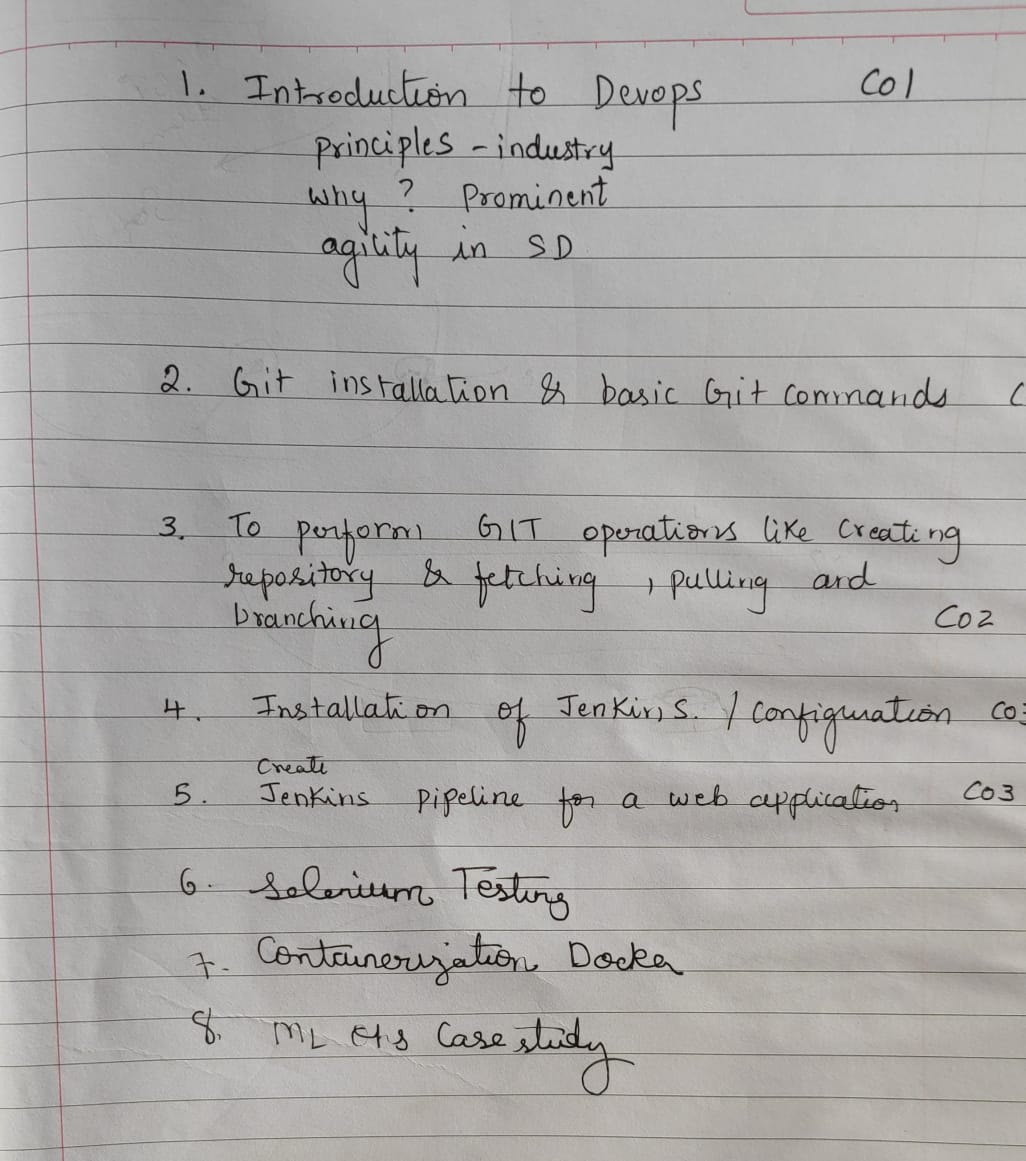 1. Introduction to Devops CO1
principles - industry
why ? Prominent
agility in SD
2. Git installation & basic Git commands C
3. To perform GIT operations like creating
repository & fetching , pulling and
branching CO2
4. Installation of Jenkins. / configuration CO3
Create
5. Jenkins pipeline for a web application CO3
6. Selenium Testing
7. Containerization Docker
8. ML Case study